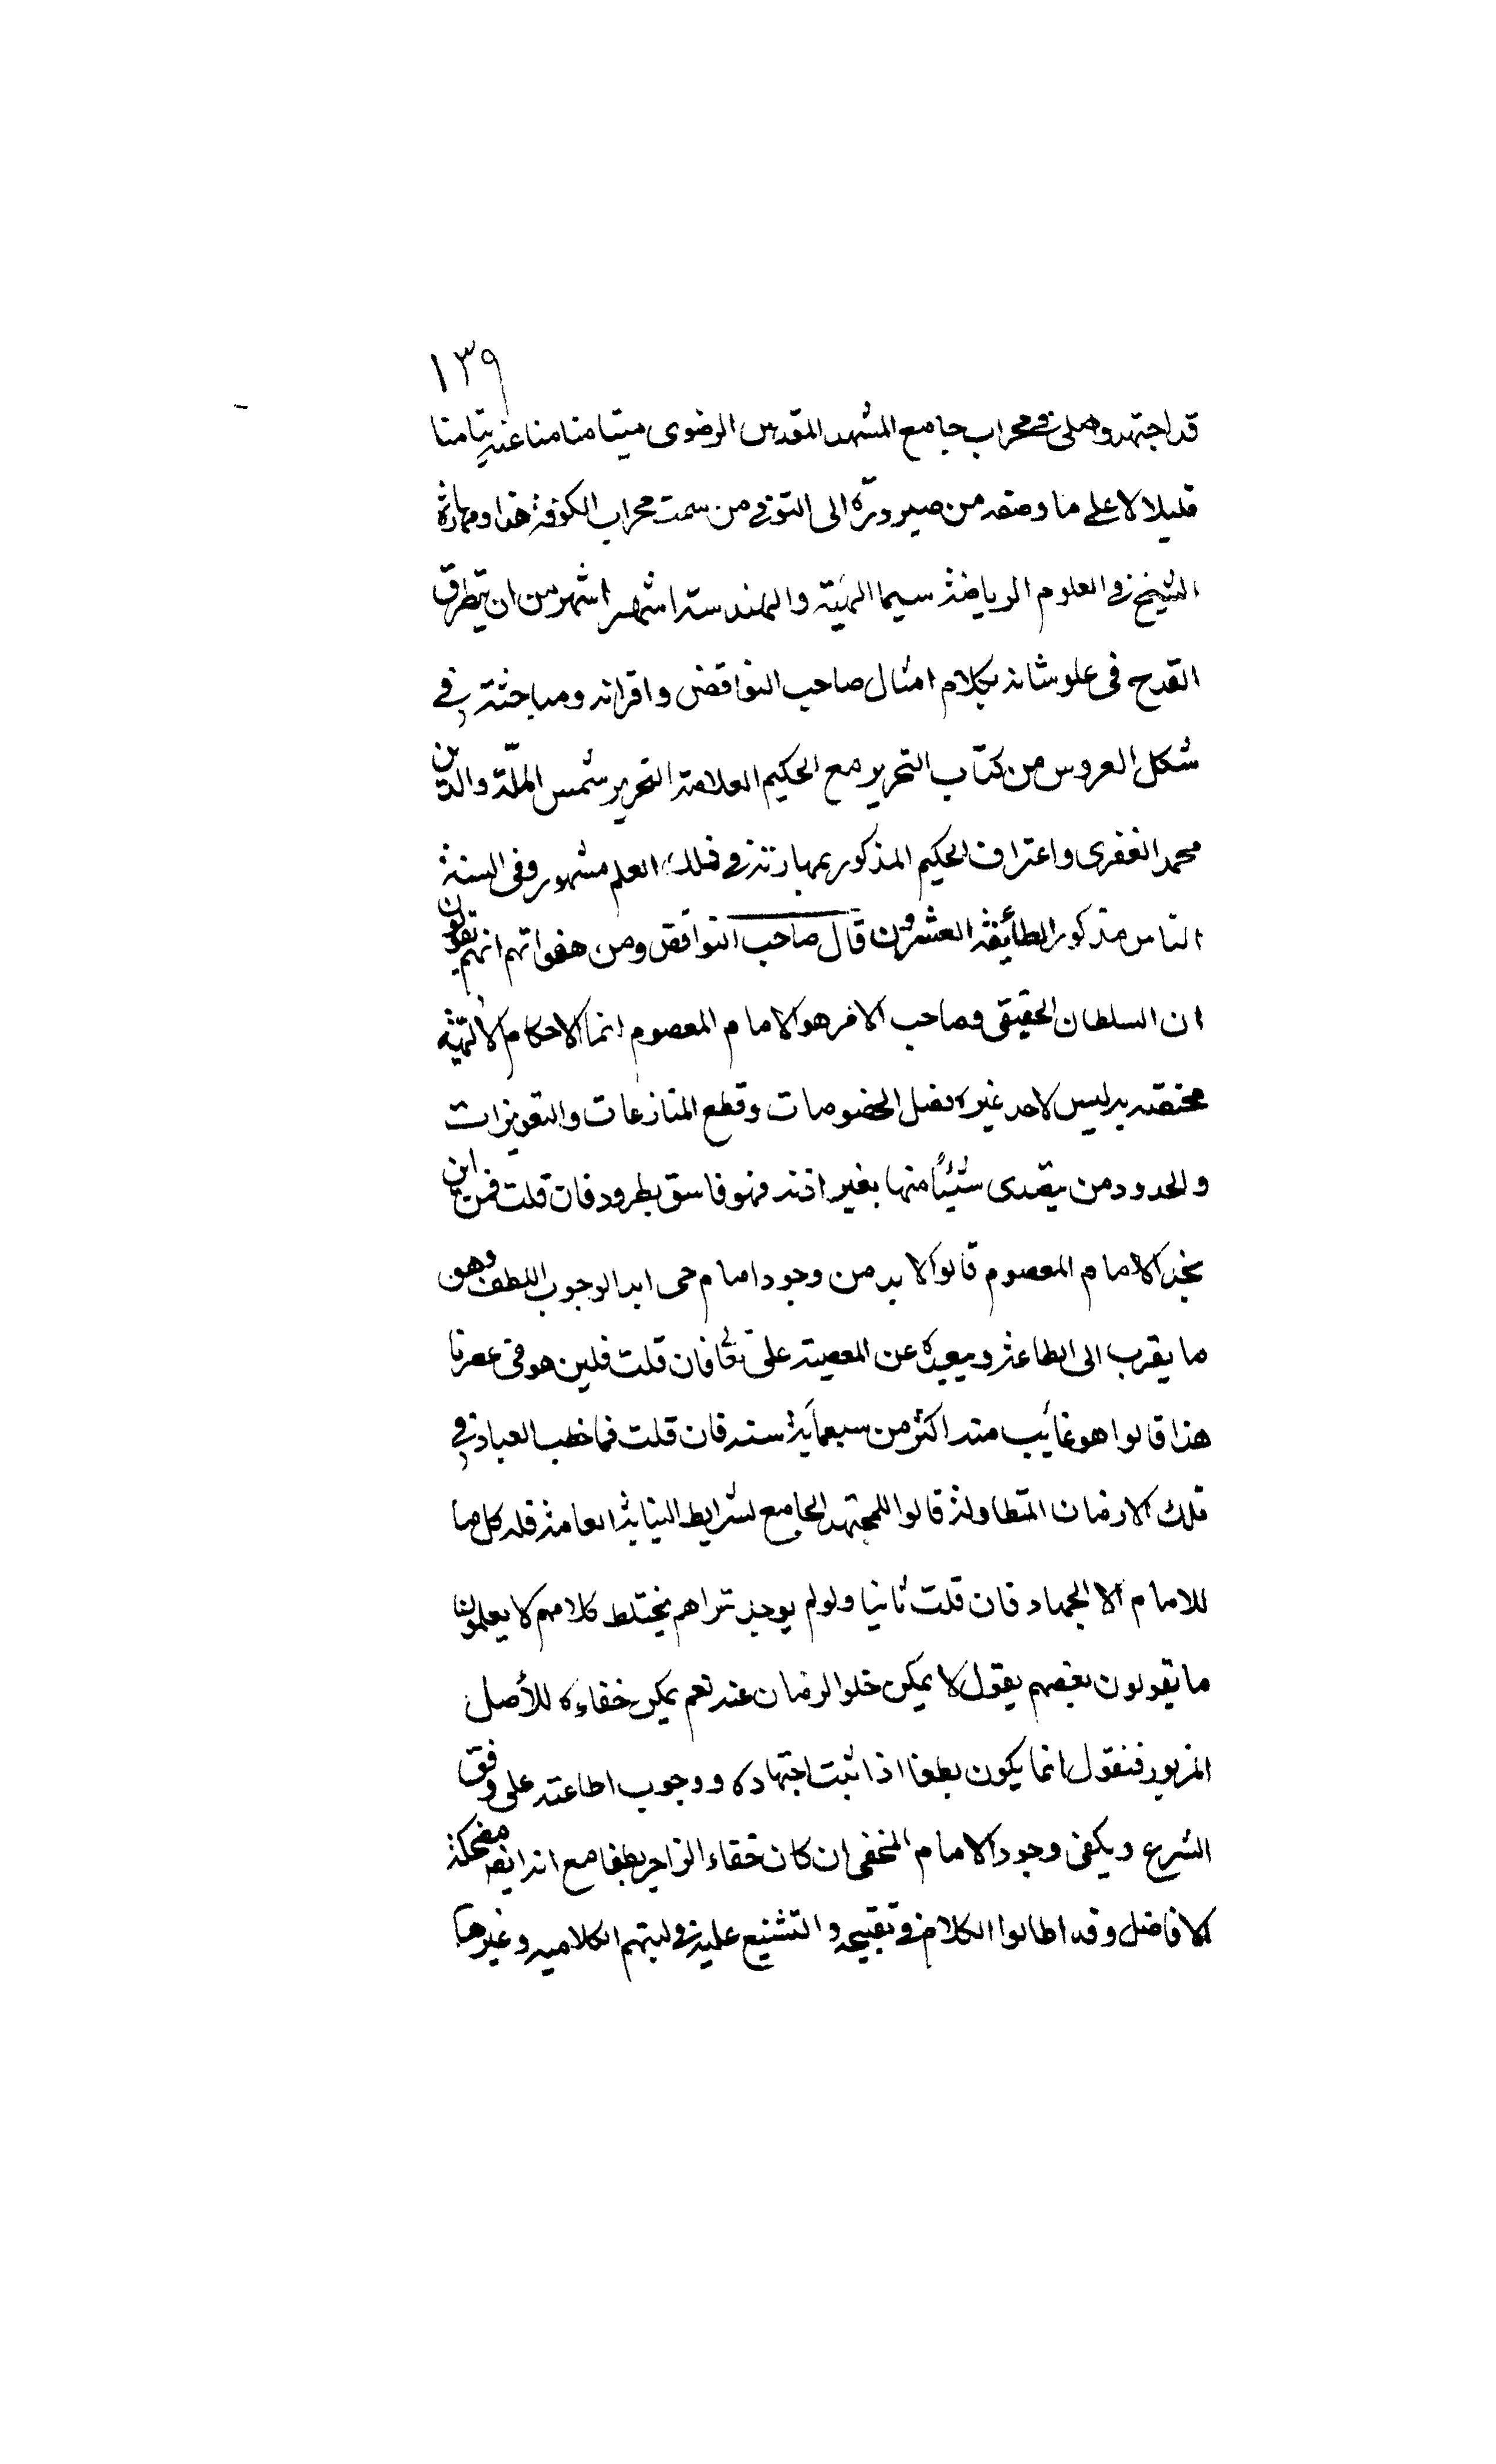 ١٣٩
قد اجتهد وصلى في محراب جامع المشهد المقدس الرضوى متيامنا منا عنه تيامنا
قليلا لا على ما وصفه من صيرورته الى التوفى من سمت محراب الكوفة هذا ومهارة
الشيخ في العلوم الرياضة سيما الهيئة والهندسة اشهر اشهر من ان يتطرق
القدح فى علو شانه بكلام امثال صاحب النواقض واقرانه ومباحثته في
شكل العروس من كتاب التحرير مع الحكيم العلامة النحرير شمس الملّة والدين
محمد الخفرى واعتراف الحكيم المذكور بمهارته في ذلك العلم مشهور وفى السنة
الناس مذكور الطائفة العشرون قال صاحب النواقض ومن هفواتهم انهم يقولون
ان السلطان الحقيقى وصاحب الامر هو الامام المعصوم انما الاحكام الالهيّة
مختصة به ليس لاحد غيره فصل الخصومات وقطع المنازعات والتعزيرات
والحدود من يتصدى شيئاً منها بغير اذنه فهو فاسق مطرود فان قلت فمن اين
نجد الامام المعصوم قالوا لا بد من وجود امام حى ابدا لوجوب اللطف وهو
ما يقرب الى الطاعة ويبعده عن المعصية على تعا فان قلت فاين هو فى عصرنا
هذا قالوا هو غائب منذ اكثر من سبعمائة سنة فان قلت فما خطب العباد في
تلك الازمان المتطاولة قالوا للمجتهد الجامع لشرايط النيابة العامة فله كل ما
للامام الا الجهاد فان قلت ثانيا ولو لم يوجد تراهم يختلط كلامهم لا يعلمون
ما يقولون بعضهم يقول لا يمكن خلو الزمان عنه نعم يمكن خفاءه للأصل
المزبور فنقول انما يكون لطفا اذا ثبت اجتهاده ووجوب اطاعته على وفق
الشرع ويكفى وجود الامام المخفى ان كان خفاء الزاجر لطفا مع انه ايضا مضحكة
الافاضل وقد اطالوا الكلام في تقبيحه والتشنيع عليه في كتبهم الكلامية وغيرها